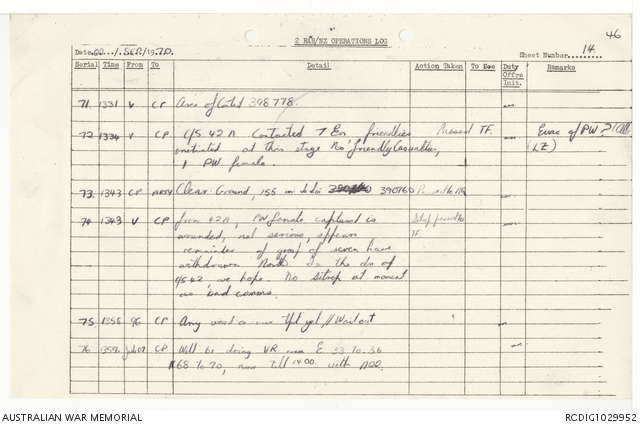 46
2 RAR/NZ OPERATIONS LOG
Date. /. SEP/1970. Sheet Number 14
Serial Time From To Detail Action Taken To See Duty Offrs Init. Remarks
71. 1331 V CP Area of Contact 398778.
72. 1334 V CP C/S 42A Contacted 7 En friendlies Passed TF. Evac of PW ?
initiated at this stage No friendly Casualties, (LZ)
1 PW female.
73. 1343 CP ARTY Clear Ground, 155 390760
74 1343 V CP from 42A, PW female captured is Sitrep
wounded, not serious, appears TF
remainder of group of seven have
withdrawn North in the dn of
C/S 42, we hope. No sitrep at moment
as bad comms.
75 1355 96 CP Any word on our yet // Wait out
76 1357 Jade07 CP Will be doing VR 33 to 36
68 to 70, now till 1400 with
AUSTRALIAN WAR MEMORIAL RCDIG1029952